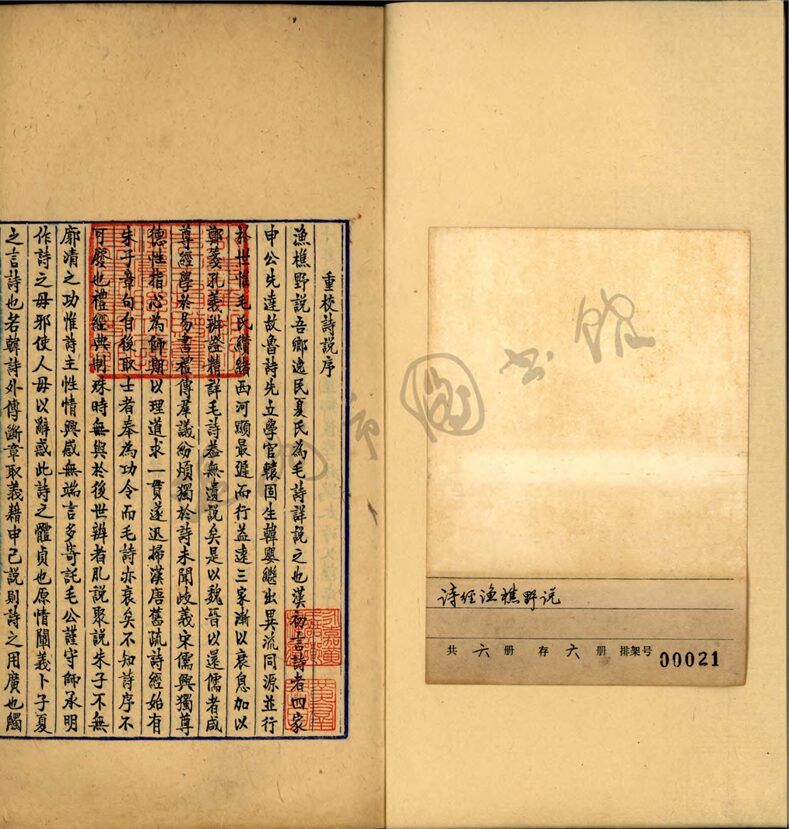 诗经渔樵野说
共 六 册 存 六 册 排架号 00021
重校詩說序
漁樵野說吾鄉逸民夏氏為毛詩詳說之也漢初言詩者四家
申公先達故魯詩先立學官轅固生韓嬰繼出異流同源並行
於世惟毛氏纘緒西河顯最遲而行益遠三家漸以衰息加以
鄭箋孔義辨證精詳毛詩蓋無遺說矣是以魏晉以還儒者咸
尊經學於易書禮傳羣議紛煩獨於詩未聞歧義宋儒興獨尊
德性指心為師期以理道求一貫遂迅掃漢唐舊疏詩經始有
朱子章句自後取士者奉為功令而毛詩亦衰矣不知詩序不
可廢也禮經典制殊時無與於後世辨者肊說聚說朱子不無
廓清之功惟詩主性情興感無端言多寄託毛公謹守師承明
作詩之毋邪使人毋以辭惑此詩之體貞也原情闡義卜子夏
之言詩也若韓詩外傳斷章取義藉申己說則詩之用廣也觸